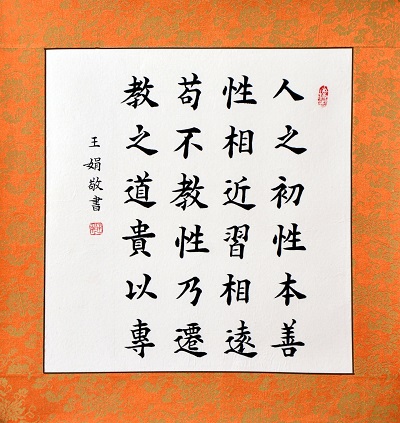 人之初性本善
性相近習相遠
苟不教性乃遷
教之道貴以專
王娟敬書